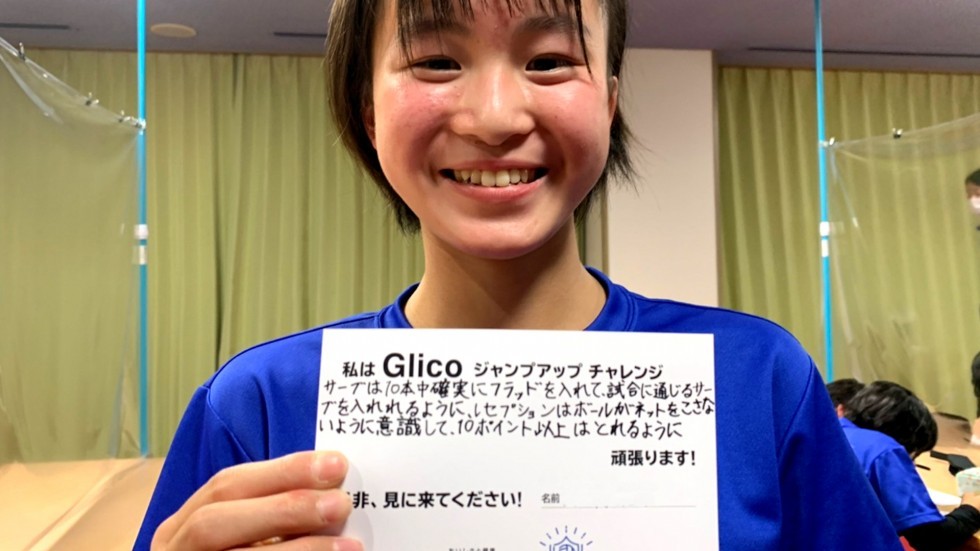 私は Glico ジャンプアップ チャレンジ
サーブは10本中確実にフラッドを入れて、試合に通じるサー
ブを入れれるように、レセプションはボールがネットをこさな
いように意識して、10ポイント以上はとれるように
頑張ります!
非、見に来てください!
名前